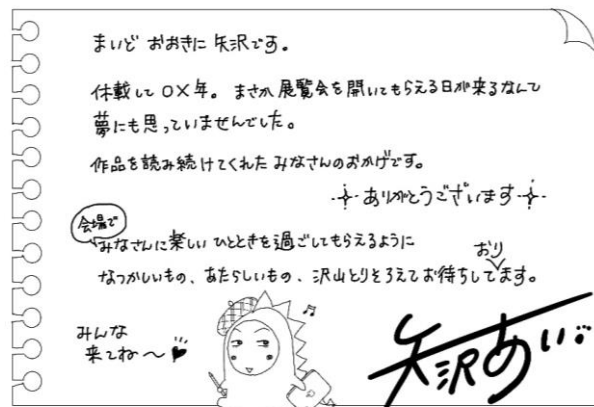 まいど おおきに 矢沢です。
休載して〇×年。まさか展覧会を開いてもらえる日が来るなんて
夢にも思っていませんでした。
作品を読み続けてくれた みなさんのおかげです。
ありがとうございます
会場で
みなさんに楽しい ひとときを過ごしてもらえるように
なつかしいもの、あたらしいもの、沢山とりそろえてお待ちしてます。
おり
みんな
来てね〜♥
矢沢あい。